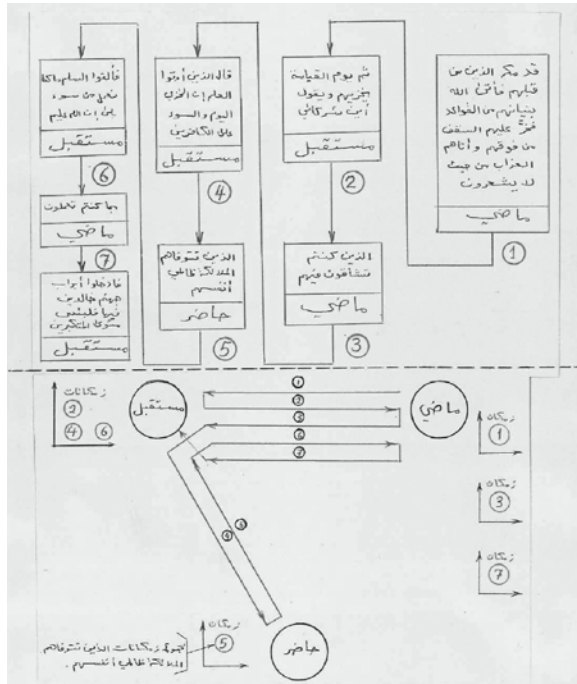 قد مكر الذين من
قبلهم فأتى الله
بنيانهم من القواعد
فخرّ عليهم السقف
من فوقهم وأتاهم
العذاب من حيث
لا يشعرون
ماضي
1
ثم يوم القيامة
يخزيهم ويقول
أين شركائي
مستقبل
2
الذين كنتم
تشاقون فيهم
ماضي
3
قال الذين أوتوا
العلم إن الخزي
اليوم والسوء
على الكافرين
مستقبل
4
الذين تتوفاهم
الملائكة ظالمي
أنفسهم
حاضر
5
فألقوا السلم ماكنا
نعمل من سوء
بلى إن الله عليم
مستقبل
6
بما كنتم تعملون
ماضي
7
فادخلوا أبواب
جهنم خالدين
فيها فلبئس
مثوى المتكبرين
مستقبل
ماضي
مستقبل
حاضر
1
2
3
6
7
زمكان
1
زمكان
3
زمكان
7
زمكانات
2
4 6
زمكان
5
زمكانات الذين تتوفاهم
الملائكة ظالمي أنفسهم.